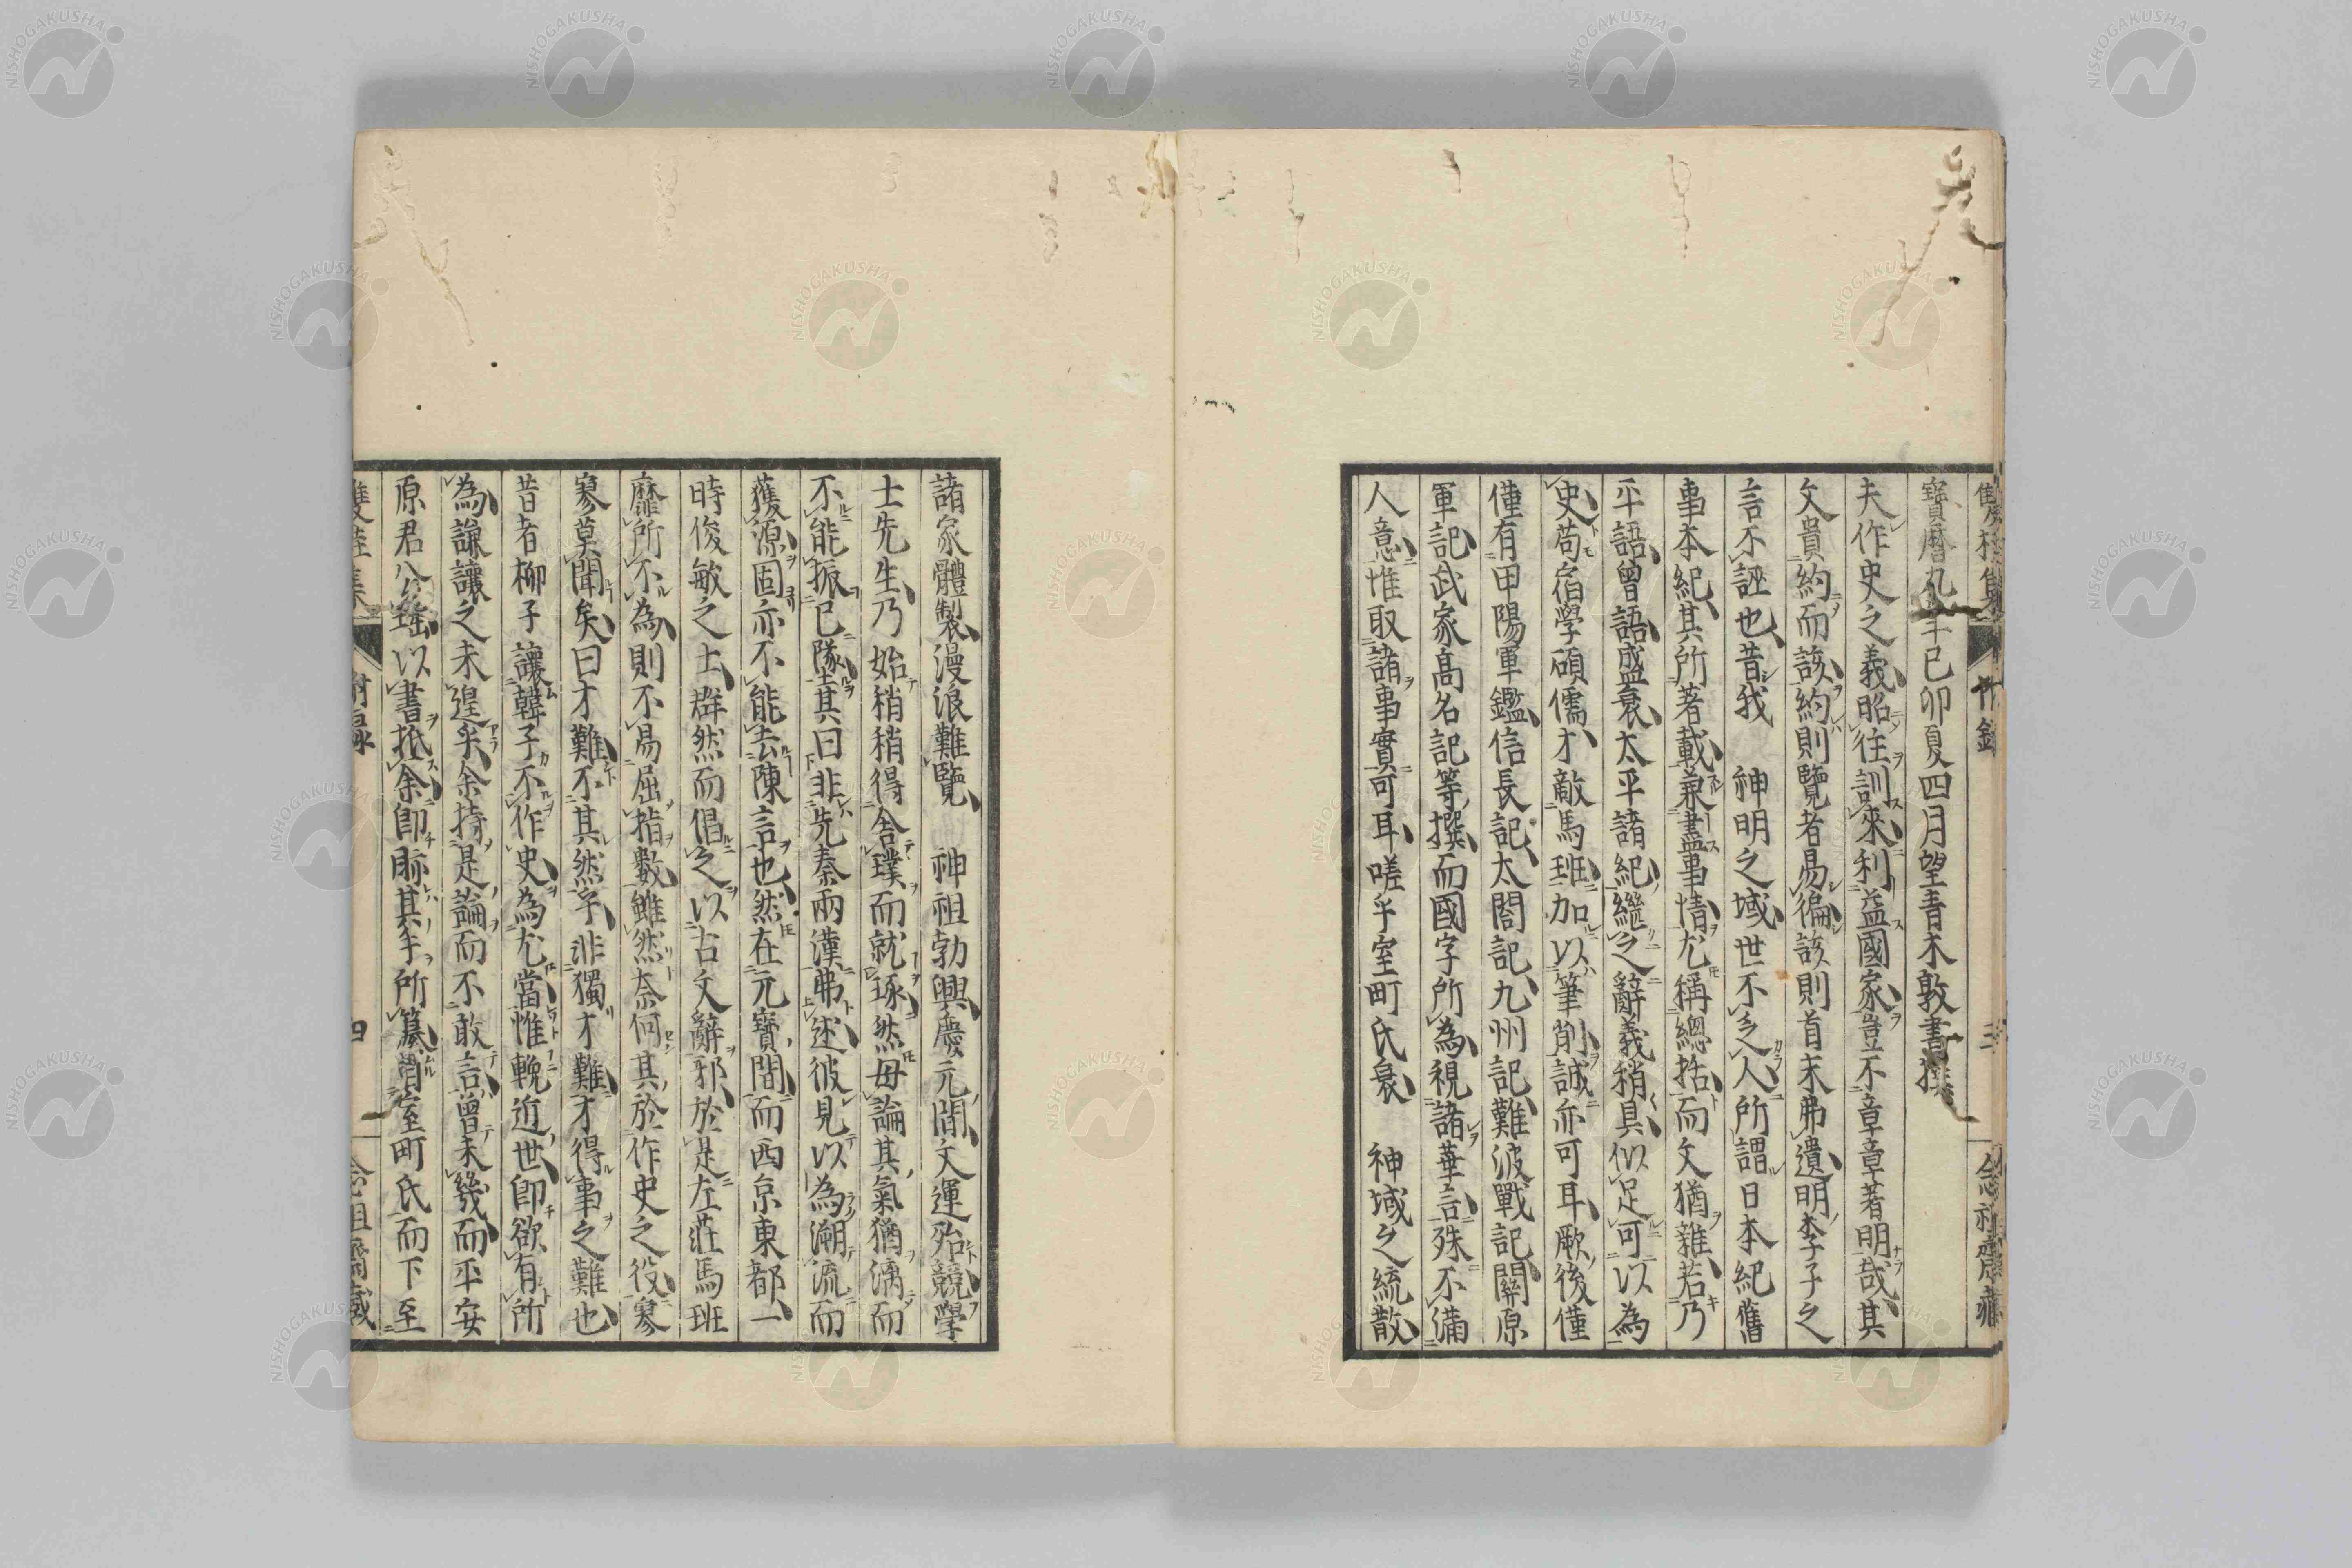 雙桂集 附錄 三 念祖齋藏
寶曆九年己卯夏四月望青木敦書撰
夫作史之義昭往訓來利益國家豈不章章著明哉其
文貴約而該約則覽者易徧該則首末弗遺明李子之
言不誣也昔我 神明之域世不乏人所謂日本紀舊
事本紀其所著載兼盡事情尤稱總括而文猶雜若乃
平語曾語盛衰太平諸紀繼之辭義稍具似足可以為
史苟宿學碩儒才敵馬班加以筆削誠亦可耳厥後僅
僅有甲陽軍鑑信長記太閤記九州記難波戰記關原
軍記武家高名記等撰而國字所為視諸華言殊不滿
人意惟取諸事實可耳嗟乎室町氏衰 神域之統散
諸家體製漫浪難覽 神祖勃興慶元間文運殆競學
士先生乃始稍稍得舍璞而就琢然毋論其氣猶滴而
不能振已隊其曰非先秦兩漢弗述彼見以為溯流而
獲源固亦不能去陳言也然在元寶間而西京東都一
時俊敏之士群然而倡之以古文辭邪於是左莊馬班
靡所不為則不易屈指數雖然奈何其於作史之役寥
寥莫聞矣曰才難不其然乎非獨才難才得事之難也
昔者柳子讓韓子不作史為尤當惟輓近世即欲有所
為謙讓之未遑乎余持是論而不敢言曾未幾而平安
原君公瑤以書抵余即眎其手所纂謂室町氏而下至
雙桂集 附錄 四 念祖齋藏